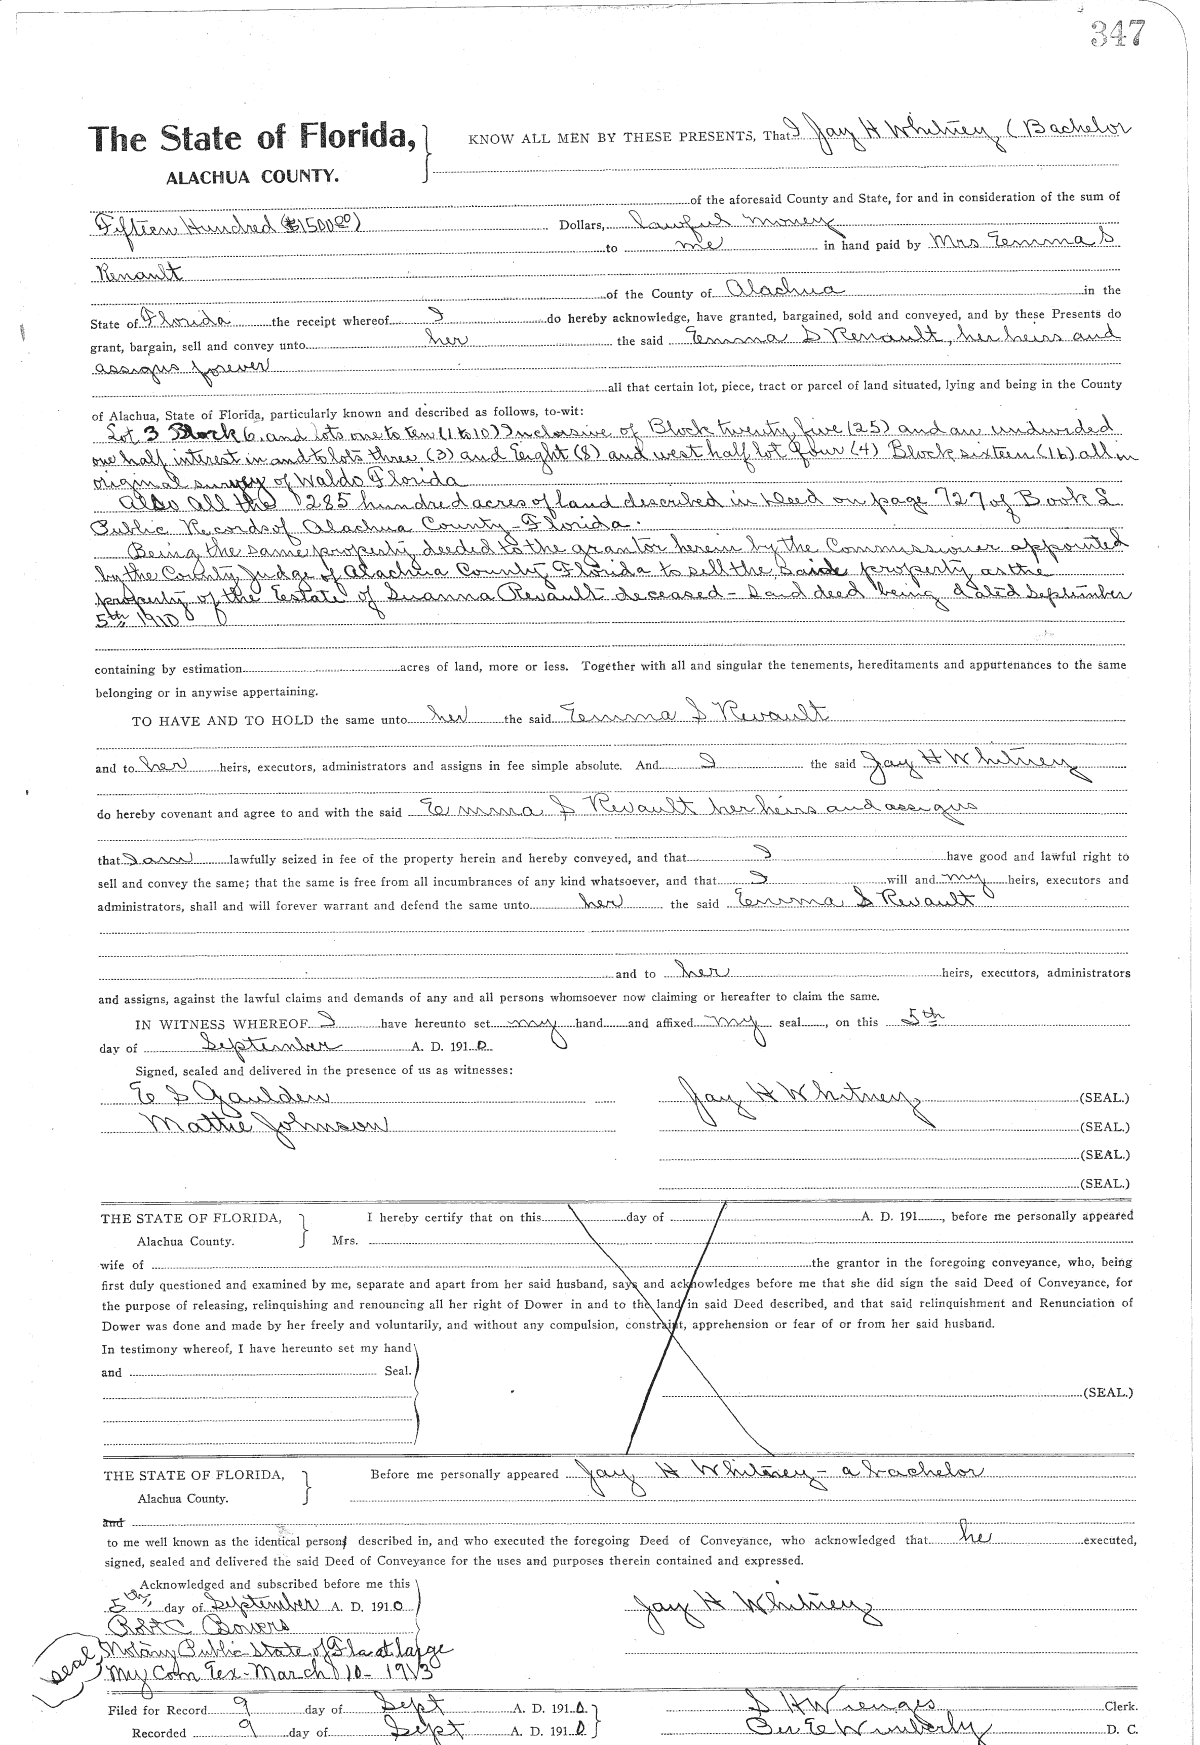 347
The State of Florida, KNOW ALL MEN BY THESE PRESENTS, That I Jay H Whitney, (Bachelor
ALACHUA COUNTY.
of the aforesaid County and State, for and in consideration of the sum of
Fifteen Hundred ($1500 00) Dollars, lawful money
to me in hand paid by Mrs Emma S
Renault
of the County of Alachua in the
State of Florida the receipt whereof I do hereby acknowledge, have granted, bargained, sold and conveyed, and by these Presents do
grant, bargain, sell and convey unto her the said Emma S Renault, her heirs and
assigns forever
all that certain lot, piece, tract or parcel of land situated, lying and being in the County
of Alachua, State of Florida, particularly known and described as follows, to-wit:
Lot 3 Block 6, and lots one to ten (1 to 10) Inclusive of Block twenty five (25) and an undivided
one half interest in and to lots three (3) and Eight (8) and west half lot four (4) Block sixteen (16) all in
original survey of Waldo Florida
Also all the 1285 hundred acres of land described in Deed on page 727 of Book L
Public Records of Alachua County - Florida.
Being the same property deeded to the grantor herein by the Commissioner appointed
by the County Judge of Alachua County Florida to sell the said property as the
property of the Estate of Susanna Revault deceased - said deed being dated September
5th 1910
containing by estimation acres of land, more or less. Together with all and singular the tenements, hereditaments and appurtenances to the same
belonging or in anywise appertaining.
TO HAVE AND TO HOLD the same unto her the said Emma S Revault
and to her heirs, executors, administrators and assigns in fee simple absolute. And I the said Jay H Whitney
do hereby covenant and agree to and with the said Emma S Revault her heirs and assigns
that I am lawfully seized in fee of the property herein and hereby conveyed, and that I have good and lawful right to
sell and convey the same; that the same is free from all incumbrances of any kind whatsoever, and that I will and my heirs, executors and
administrators, shall and will forever warrant and defend the same unto her the said Emma S Revault
and to her heirs, executors, administrators
and assigns, against the lawful claims and demands of any and all persons whomsoever now claiming or hereafter to claim the same.
IN WITNESS WHEREOF I have hereunto set my hand and affixed my seal, on this 5th
day of September A. D. 1910.
Signed, sealed and delivered in the presence of us as witnesses:
E S Gaulden Jay H Whitney (SEAL.)
Mattie Johnson (SEAL.)
(SEAL.)
(SEAL.)
THE STATE OF FLORIDA, I hereby certify that on this day of A. D. 191 , before me personally appeared
Alachua County. Mrs.
wife of the grantor in the foregoing conveyance, who, being
first duly questioned and examined by me, separate and apart from her said husband, says and acknowledges before me that she did sign the said Deed of Conveyance, for
the purpose of releasing, relinquishing and renouncing all her right of Dower in and to the land in said Deed described, and that said relinquishment and Renunciation of
Dower was done and made by her freely and voluntarily, and without any compulsion, constraint, apprehension or fear of or from her said husband.
In testimony whereof, I have hereunto set my hand
and Seal.
(SEAL.)
THE STATE OF FLORIDA, Before me personally appeared Jay H Whitney - a bachelor
Alachua County.
and
to me well known as the identical person described in, and who executed the foregoing Deed of Conveyance, who acknowledged that he executed,
signed, sealed and delivered the said Deed of Conveyance for the uses and purposes therein contained and expressed.
Acknowledged and subscribed before me this
5th, day of September A. D. 1910 Jay H Whitney
Bowers
seal Notary Public State of Fla at large
My Com Ex - March 10 - 1913
Filed for Record 9 day of Sept A. D. 1910 S H Wienges Clerk.
Recorded 9 day of Sept A. D. 1910 Wimberly D. C.